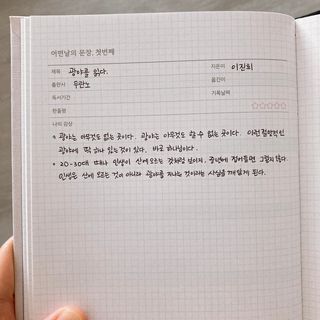 어떤날의 문장, 첫번째
제목 광야를 읽다. 지은이 이진희
출판사 두란노 옮긴이
독서기간 기록날짜
한줄평 ☆☆☆☆☆
나의 감상
* 광야는 아무것도 없는 곳이다. 광야는 아무것도 할 수 없는 곳이다. 이런 절망적인
광야에 딱 하나 있는 것이 있다. 바로 하나님이다.
* 20-30대 때나 인생이 산에 오르는 것처럼 보이지, 중년에 접어들면 그렇지 않다
인생은 산에 오르는 것이 아니라 광야를 지나는 것이라는 사실을 깨닫게 된다.